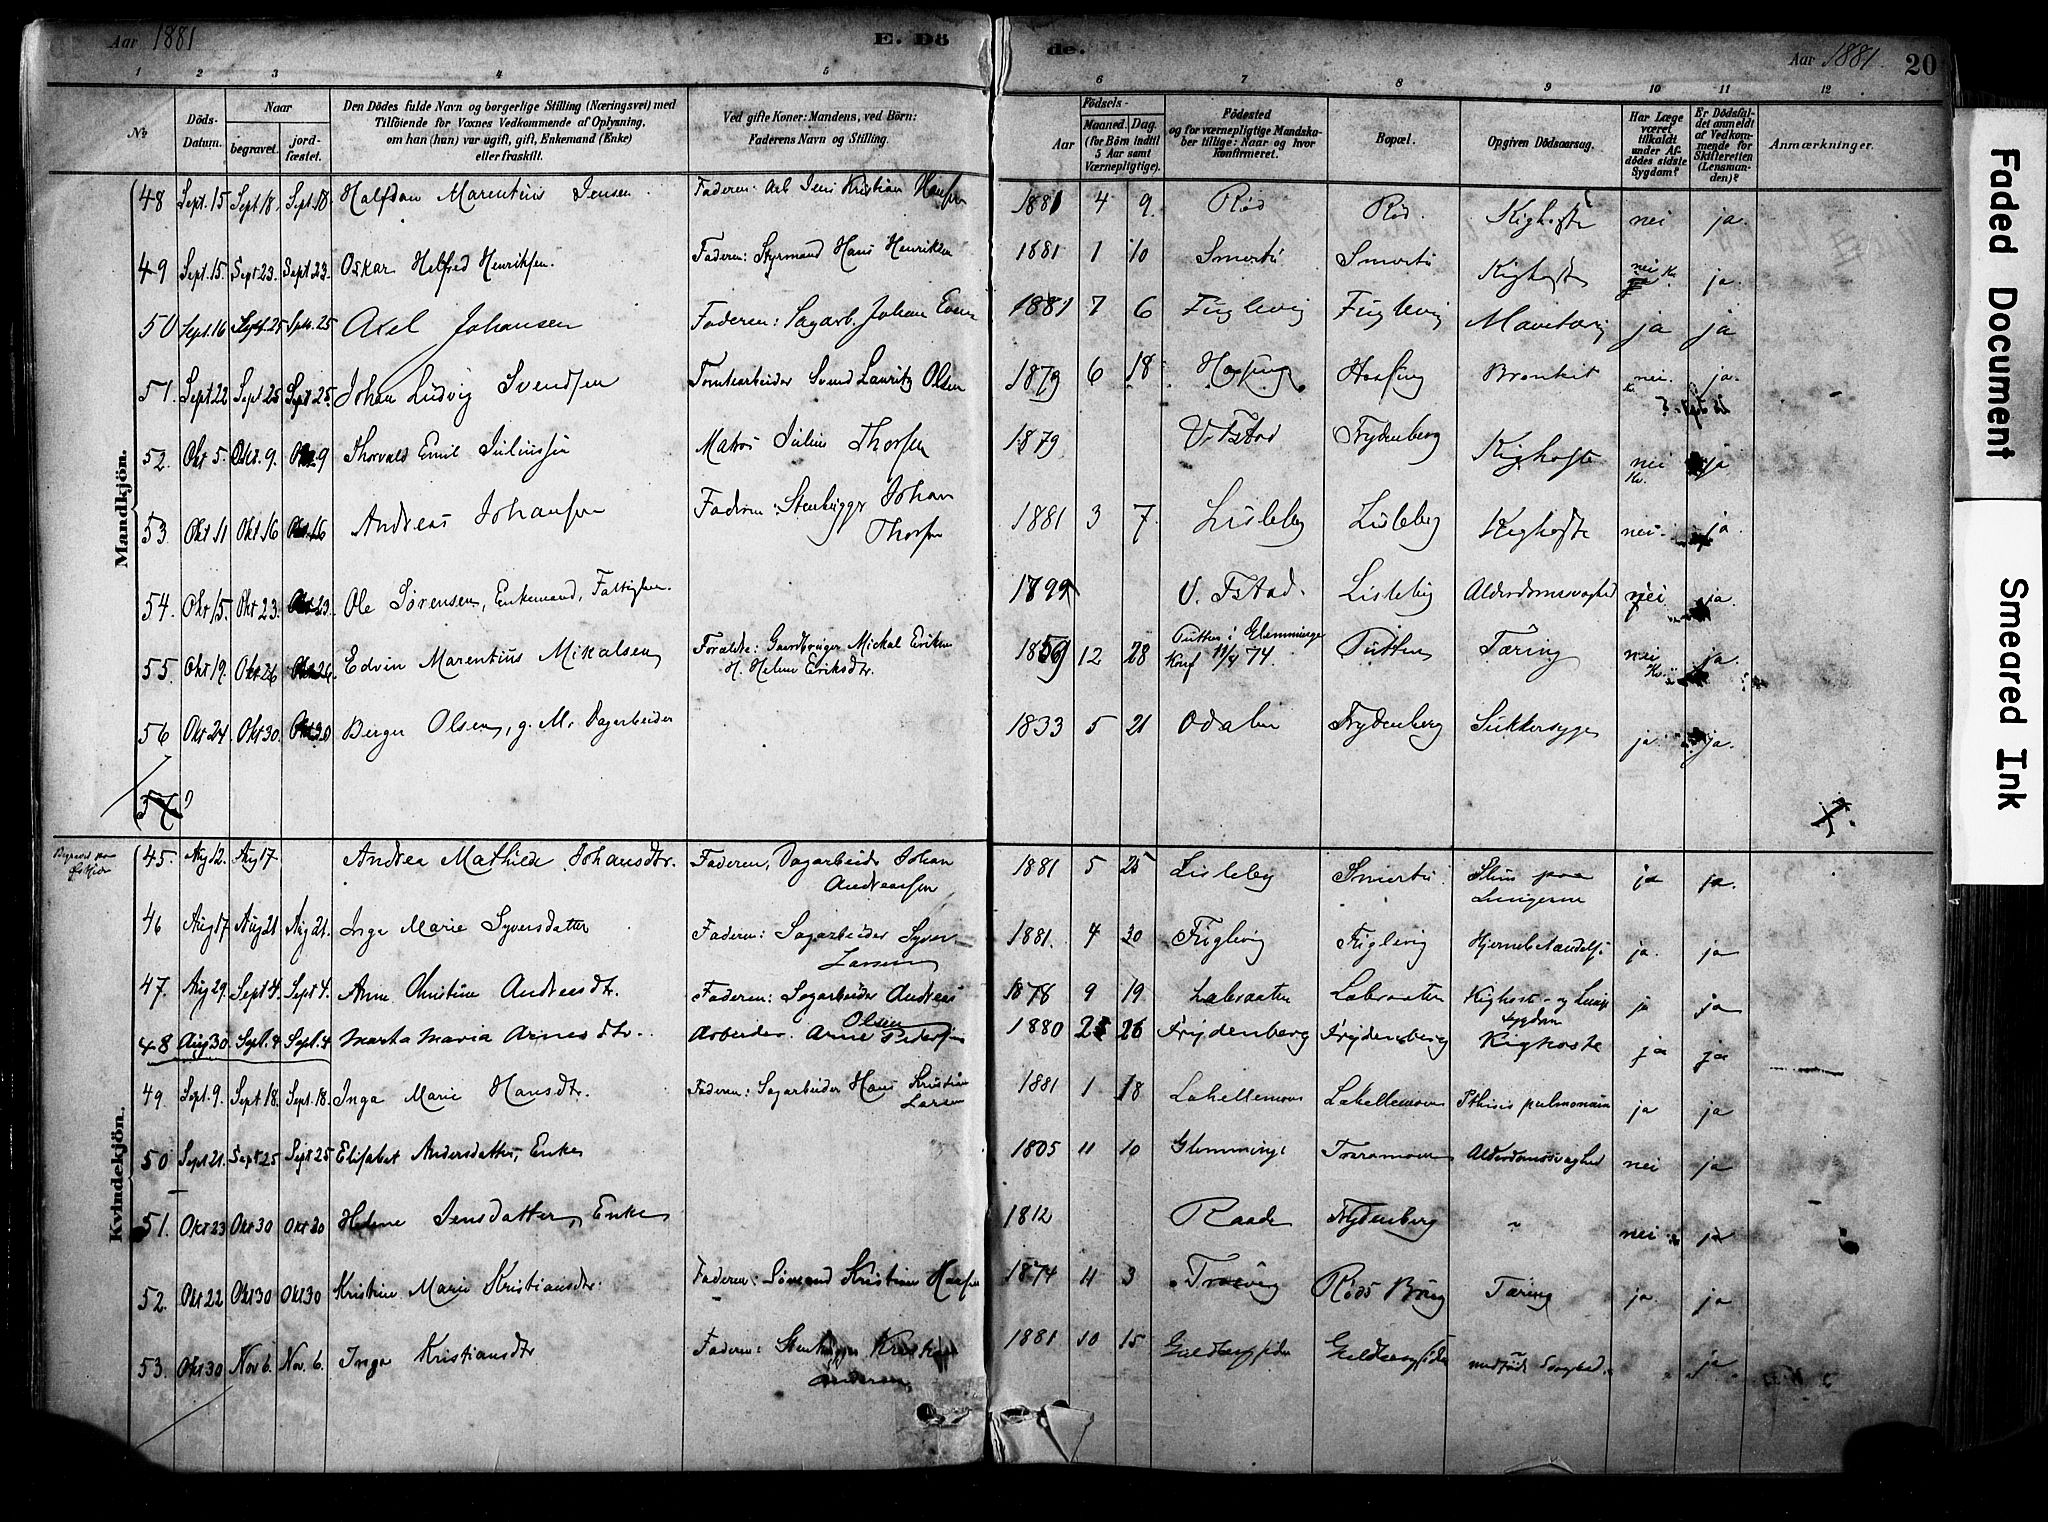 Aar 1881
E. Dö
de.
Aar 1881.
20
1 2 3 4 5 6 7 8 9 10 11 12
No
Döds-Datum.
Naar
begravet.
jord-fæstet.
Den Dödes fulde Navn og borgerlige Stilling (Næringsvei) med
Tilföiende for Voxnes Vedkommende af Oplysning,
om han (hun) var ugift, gift, Enkemand (Enke)
eller fraskilt.
Ved gifte Koner: Mandens, ved Börn:
Faderens Navn og Stilling.
Födsels-
Aar
Maaned. Dag.
(for Börn indtil
5 Aar samt
Værnepligtige).
Födested
og for værnepligtige Mandska-
ber tillige: Naar og hvor
konfirmeret.
Bopæl.
Opgiven Dödsaarsag.
Har Læge
været
tilkaldt
under Af-
dödes sidste
Sygdom?
Er Dödsfal-
det anmeldt
af Vedkom-
mende for
Skifteretten
(Lensman-
den)?
Anmærkninger.
Mandkjön.
48 Sept. 15 Sept. 18. Sept. 18 Halfdan Marentius Jensen. Faderen: Arb Jens Kristian Hansen 1881 4 9. Rød Rød. Kighoste nei ja.
49 Sept. 15. Sept 23. Sept 23. Oskar Helfred Henriksen. Faderen: Styrmand Hans Henriksen 1881 1 10 Smertu Smertu Kighoste nei ja.
50 Sept. 16 Sept. 25 Sept. 25 Axel Johansen Faderen: Sagarb. Johan 1881 7 6 Fuglevig Fuglevig ja ja
51. Sept 22 Sept 25 Sept 25. Johan Ludvig Svendsen Tomtearbeider Svend Lauritz Olsen 1879 6 18 Bronkit nei. ja.
52. Okt 5. Okt. 9. Okt 9 Thorvald Emil Juliussen Matros Julius Thorsen 1879 V. Fstad Frydenberg Kighoste nei ja
53. Okt 11 Okt 16 Okt 16 Andreas Johansen Faderen: Stenhugger Johan
Thorsen 1881 3 7. Lisleby Lisleby Kighoste nei. ja.
54. Okt 15. Okt 23. Okt 23. Ole Sørensen, Enkemand, Fattiglem. 1799 V. Fstad. Lisleby Alderdomssvaghed nei ja.
55. Okt 19. Okt 26 Okt 26. Edvin Marentius Mikalsen Forældre: Gaardbruger Mickal Eriksen
H. Helene Eriksdtr. 1859 12 28 Putten i Glemminge
Konf 11/4 74. Putten Tæring nei ja.
56 Okt 24. Okt 30. Okt 30 Berger Olsen, g. M. Dagarbeider 1833 5 21 Odalen Frydenberg Sukkersyge ja ja.
57?
Kvindekjön.
45. Aug 12. Aug 17 Andrea Mathilde Johansdtr. Faderen, Dagarbeider Johan
Andreasen 1881 5 25 Lisleby Smertu. Slim paa
Lungerne ja ja.
46 Aug 17 Aug 21 Aug 21. Inga Marie Syversdatter Faderen: Sagarbeider Syver
Larsen 1881. 4 30 Fuglevig Fuglevig ja. ja
47. Aug 29. Sept 4. Sept 4. Anne Christine Andreasdtr. Faderen: Sagarbeider Andreas
Olsen 1878 9 19 Labraaten Labraaten Kighoste og Lunge
sygdom ja ja
48 Aug 30 Sept. 4 Sept. 4 Marta Maria Arnesdtr. Arbeider. Arne Pedersen 1880 2 26 Frydenberg Frydenberg Kighoste ja ja
49. Sept. 9. Sept 18. Sept. 18. Inga Marie Hansdtr. Faderen: Sagarbeider Hans Kristian
Larsen 1881 1 18 Lahellemoen Lahellemoen Pthisis pulmonum ja ja
50 Sept 21. Sept 25 Sept 25 Elisabet Andersdatter, Enke 1805 11 10 Glemminge Traramoen Alderdomssvaghed nei ja
51. Okt 23 Okt 30 Okt 30 Helene Jensdatter, Enke 1812 Raade Frydenberg " nei ja
52. Okt 22 Okt 30 Okt 30 Kristine Marie Kristiansdtr. Faderen: Sømand Kristian Hansen 1874 11 3 Røds Brug Tæring ja. ja
53. Okt 30 Nov 6. Nov. 6. Inga Kristiansdtr Faderen: Stenhugger Kristian
Andersen 1881 10 15 Guldbergsiden Guldbergsiden medfødt Svaghed. ja
Faded Document
Smeared Ink